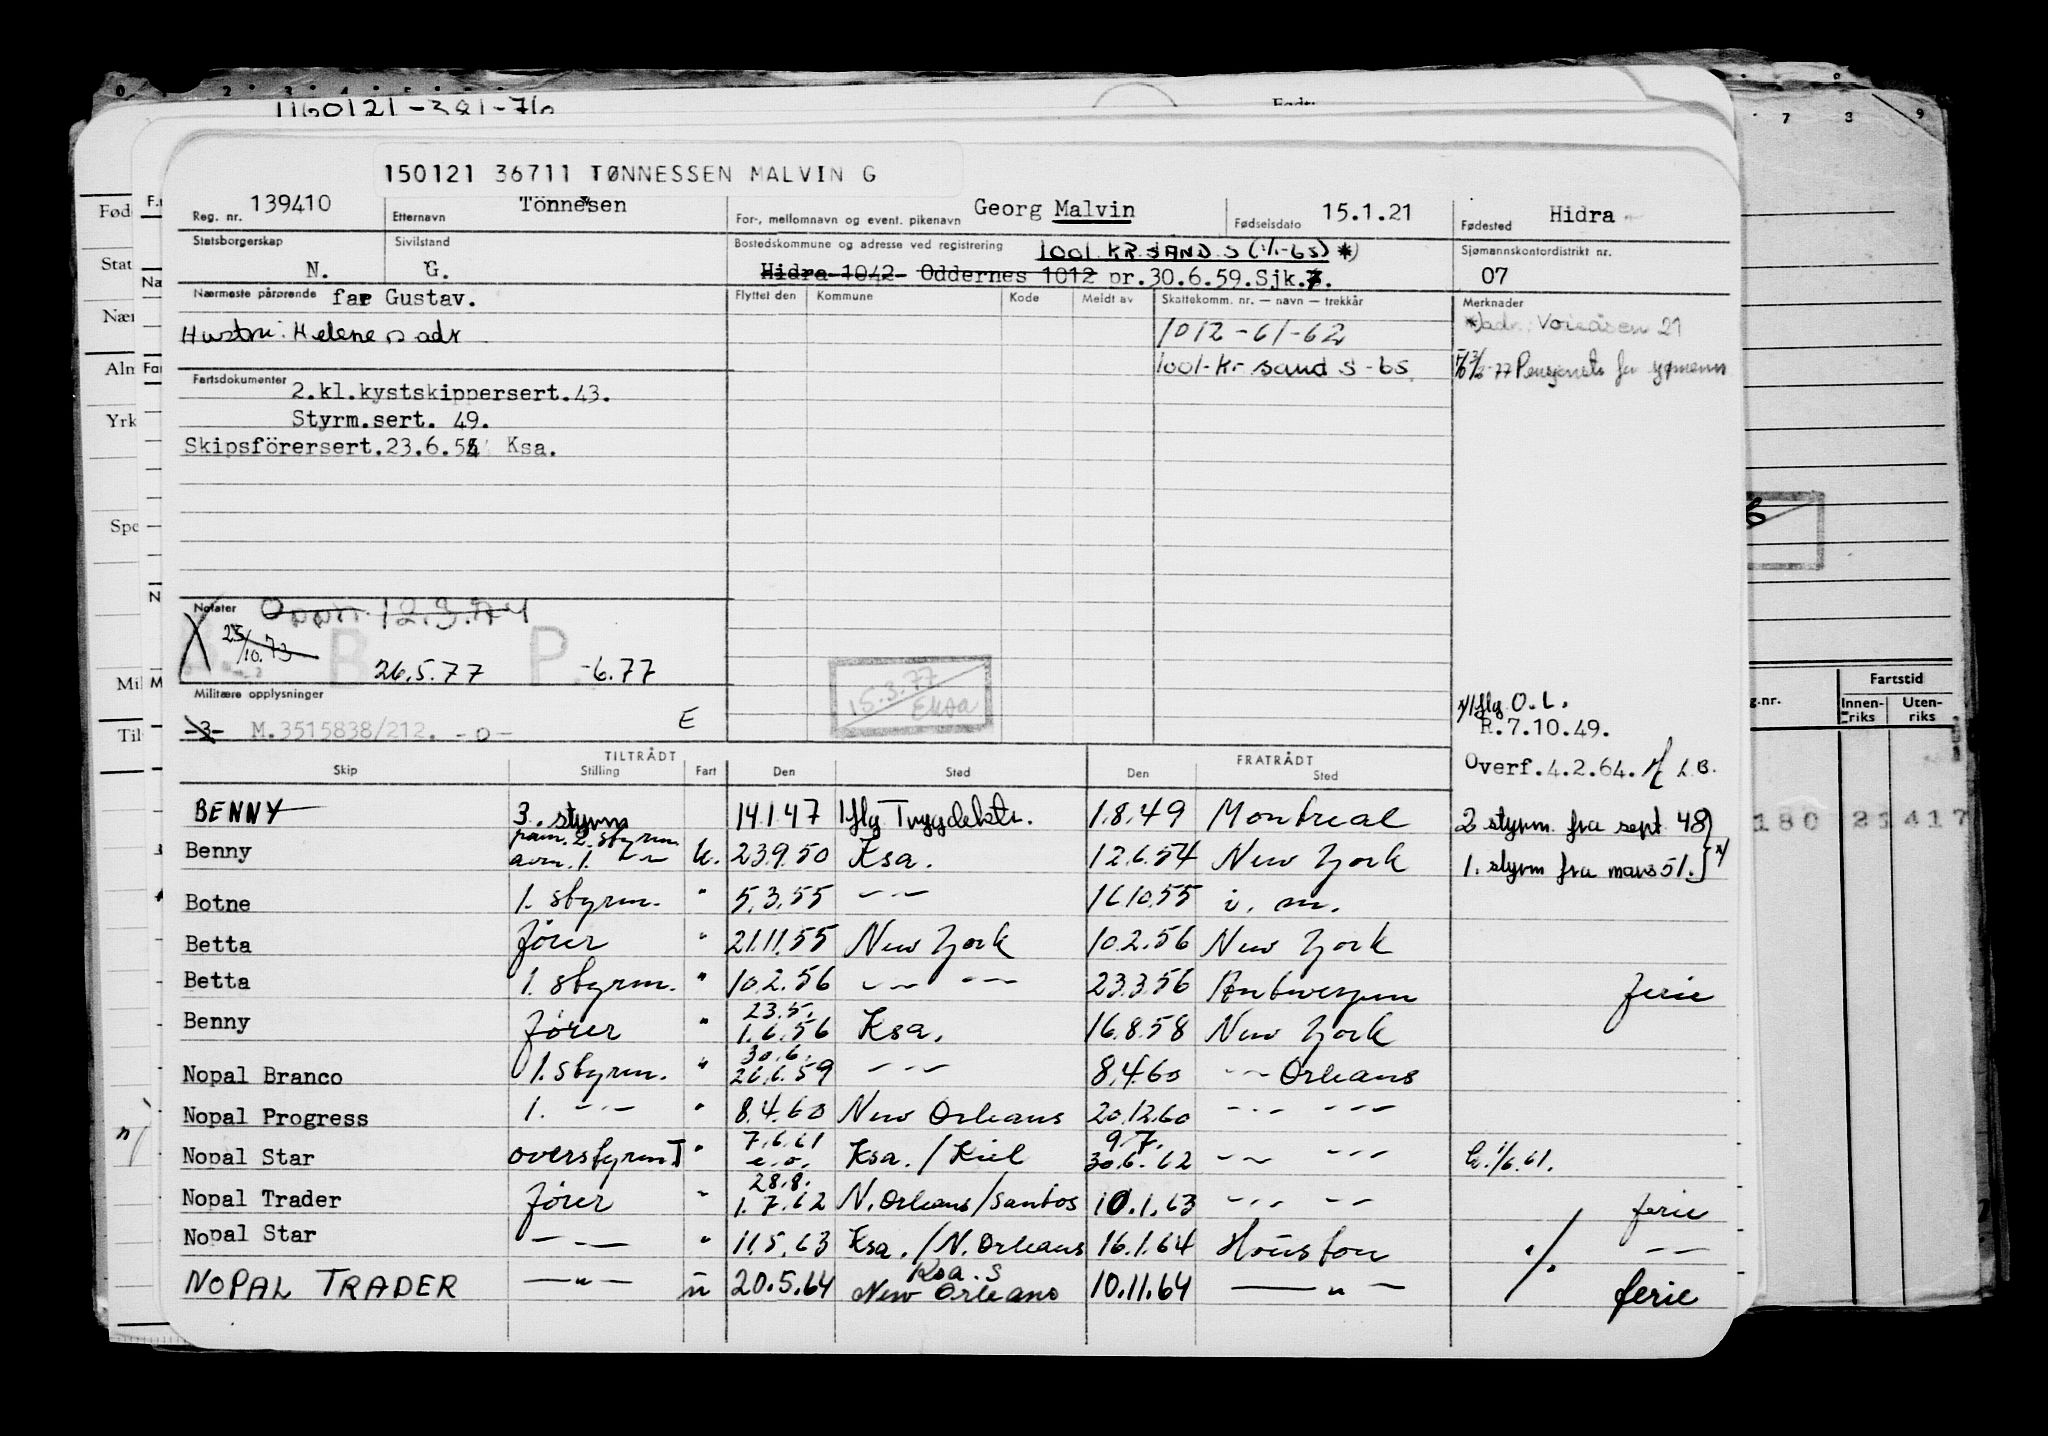 1160121-381-76
150121 36711 TØNNESSEN MALVIN G
Reg. nr. 139410 Etternavn Tönnesen For-, mellomnavn og event. pikenavn Georg Malvin Fødselsdato 15.1.21 Fødested Hidra
Statsborgerskap N. Sivilstand G. Bostedskommune og adresse ved registrering 1001 KR.SAND S (1/1-65) *)
Hidra 1042 Oddernes 1012 pr.30.6.59.Sjk.7. Sjømannskontordistrikt nr. 07
Nærmeste pårørende far Gustav. Flyttet den Kommune Kode Meldt av Skattekomm. nr. — navn — trekkår Merknader
Hustru: Helene s adr 1012-61-62 *) adr: Voieåsen 21
1001-Kr sand S-65
Fartsdokumenter 2.kl.kystskippersert.43.
Styrm.sert. 49.
Skipsförersert.23.6.54 Ksa.
Notater Oppn. 12.3.74
25/10.73 B P
26.5.77 -6.77
15.3.77
Militære opplysninger
-3- M.3515838/212. -o- E
x/flg O.L.
R.7.10.49.
Overf.4.2.64. L.B.
TILTRÅDT FRATRÅDT
Skip Stilling Fart Den Sted Den Sted
BENNY 3. styrm 14.1.47 iflg Trygdektr. 1.8.49 Montreal 2 styrm. fra sept 48
Benny påm. 2. styrm. avm. 1. -"- u. 23.9.50 Ksa. 12.6.54 New York 1. styrm fra mars 51. x/
Botne 1. styrm. " 5.3.55 -"- 16.10.55 i. m.
Betta fører " 21.11.55 New York 10.2.56 New York
Betta 1. styrm. " 10.2.56 -"- -"- 23.3.56 Antwerpen ferie
Benny fører " 23.5. 1.6.56 Ksa. 16.8.58 New York
Nopal Branco 1. styrm. " 30.6. 26.6.59 -"- 8.4.60 -"- Orleans
Nopal Progress 1. -"- " 8.4.60 New Orleans 20.12.60 -"- -"-
Nopal Star overstyrm " 7.6.61 e.o. Ksa./Kiel 9.7. 30.6.62 -"- -"- 1/6.61.
Nopal Trader fører " 28.8. 1.7.62 N.Orleans/Santos 10.1.63 -"- -"- ferie
Nopal Star -"- " 11.5.63 Ksa./N.Orleans 16.1.64 Houston ./. -"-
NOPAL TRADER -"- u 20.5.64 Ksa. S New Orleans 10.11.64 -"- ferie
Fartstid
Innen-riks Uten-riks